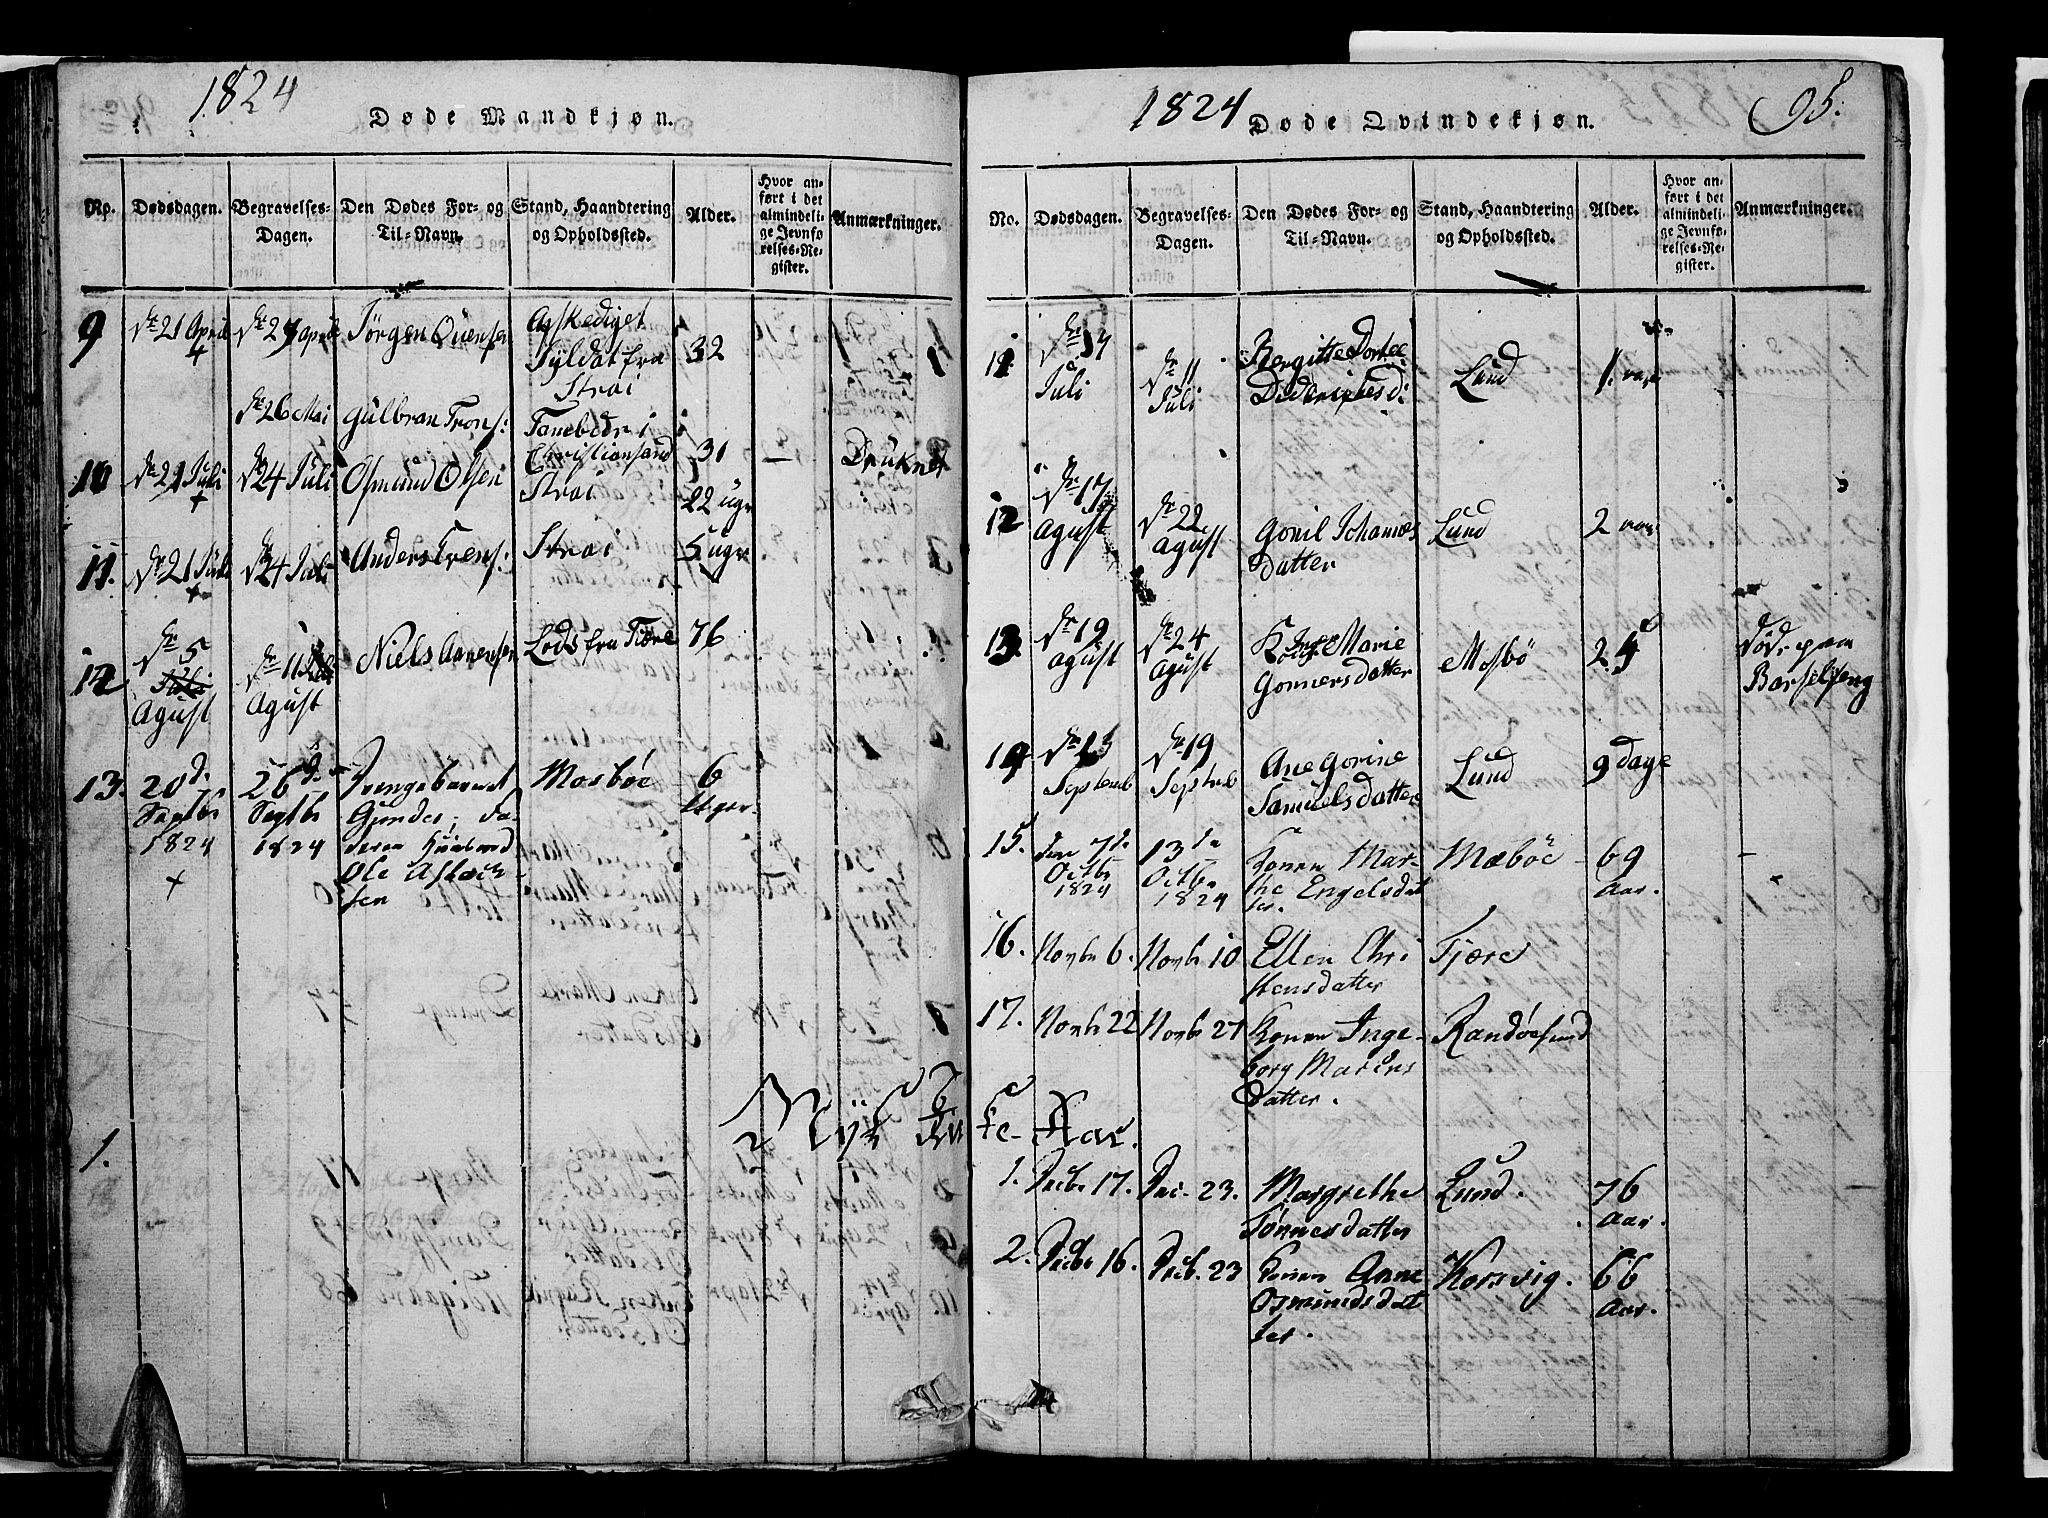 1824
Døde Mandkjøn.
No.
Dødsdagen.
Begravelses-
Dagen.
Den Dødes For- og
Til-Navn.
Stand, Haandtering
og Opholdssted.
Alder.
Hvor an-
ført i det
almindeli-
ge Jevnfø-
relses-Re-
gister.
Anmærkninger.
9
dn 21 April
+
dn 27 april
Jörgen
Afskediget
Syldat fra
Strai
32
dn 26 Mai
Gulbran Trons:
Tambor i
Christiansand
31
Druknet
10
dn 21 Juli
+
dn 24 Juli
Osmund Olsen
Strai
22 uger
11.
dn 21 Juli
+
dn 24 Juli
Anders
Strai
5 uger
12
dn 5
Juli
Agust
dn 11 Juli
Agust
Niels Aanensen
Lods fra Tiære
76
13.
20d.
Septbr
1824
+
26d.
Septbr
1824
Drengebarnet
Gunder, Fa-
deren Huusmd
Ole Aslach-
sen
Mosbøe
6
Uger
1.
Nyt Kir
1824
Døde Qvindekjøn.
95.
No.
Dødsdagen.
Begravelses-
Dagen.
Den Dødes For- og
Til-Navn.
Stand, Haandtering
og Opholdssted.
Alder.
Hvor an-
ført i det
almindeli-
ge Jevnfø-
relses-Re-
gister.
Anmærkninger.
11
dn
Juli
dn 11
Juli
Bergitte Dortee
Lund
1.
12
dn 17
Agust
dn 22
Agust
Gonil Johannes
datter
Lund
2
13.
dn 19
Agust
dn 24
Agust
Marie
Gonnersdatter
Mosbö
Död paa
Barselseng
14
dn 13
Septemb
dn 19
Septemb
Ane Gorine
Samuelsdatter
Lund
9 dage
15.
den 7de
Octbr
1824
13de
Octbr
1824
Konen Mar-
the Engelsdat
ter.
Mæbøe
69
Aar.
16.
Novbr 6.
Novbr 10
Ellen Chri
stensdatter
Tjære
17.
Novbr 22
Novbr 27
Konen Inge-
borg Mathis
datter.
Randøesund
ke-Aar.
1.
Decbr 17.
Dec. 23.
Margrethe
Tønnesdatter
Lund.
76
Aar.
2.
Decbr 16.
Decb. 23
Konen Anne
Osmundsdat
ter.
Korsvig.
66
Aar.